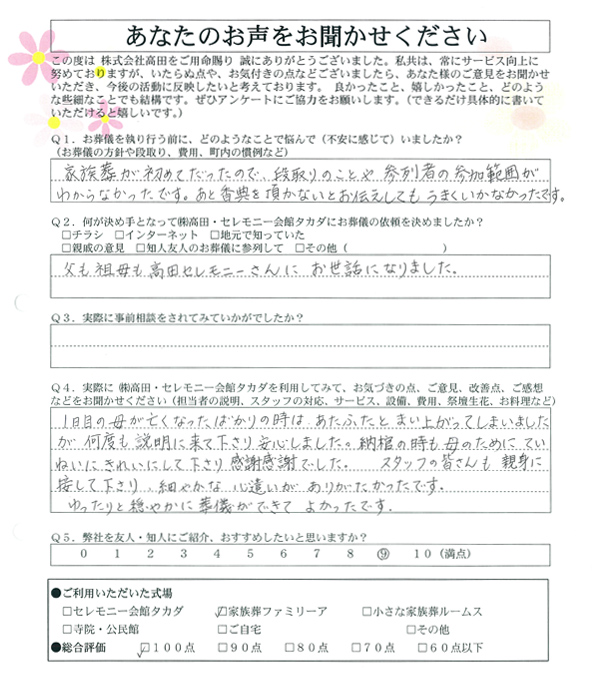 あなたのお声をお聞かせください
この度は 株式会社高田をご用命賜り 誠にありがとうございました。私共は、常にサービス向上に
努めておりますが、いたらぬ点や、お気付きの点などございましたら、あなた様のご意見をお聞かせ
いただき、今後の活動に反映したいと考えております。 良かったこと、嬉しかったこと、どのよう
な些細なことでも結構です。ぜひアンケートにご協力をお願いします。（できるだけ具体的に書いて
いただけると嬉しいです。）
Ｑ１．お葬儀を執り行う前に、どのようなことで悩んで（不安に感じて）いましたか？
（お葬儀の方針や段取り、費用、町内の慣例など）
家族葬が初めてだったので、段取りのことや 参列者の参加範囲が
わからなかったです。あと香典を頂かないとお伝えしてもうまくいかなかったです。
Ｑ２．何が決め手となって㈱高田・セレモニー会館タカダにお葬儀の依頼を決めましたか？
□チラシ □インターネット □地元で知っていた
□親戚の意見 □知人友人のお葬儀に参列して □その他（ ）
父も祖母も高田セレモニーさんに お世話になりました。
Ｑ３．実際に事前相談をされてみていかがでしたか？
Ｑ４．実際に ㈱高田・セレモニー会館タカダを利用してみて、お気づきの点、ご意見、改善点、ご感想
などをお聞かせください（担当者の説明、スタッフの対応、サービス、設備、費用、祭壇生花、お料理など）
1日目の母が亡くなったばかりの時は あたふたと まい上がってしまいました
が 何度も説明に来て下さり安心しました。納棺の時も母のために てい
ねいにきれいにして下さり感謝感謝でした。 スタッフの皆さんも 親身に
接して下さり、細やかな 心遣いが ありがたかったです。
ゆったりと穏やかに葬儀ができて よかったです.
Ｑ５．弊社を友人・知人にご紹介、おすすめしたいと思いますか？
０ １ ２ ３ ４ ５ ６ ７ ８ ⑨ １０（満点）
●ご利用いただいた式場
□セレモニー会館タカダ ☑家族葬ファミリーア □小さな家族葬ルームス
□寺院・公民館 □ご自宅 □その他
●総合評価 ☑１００点 □９０点 □８０点 □７０点 □６０点以下